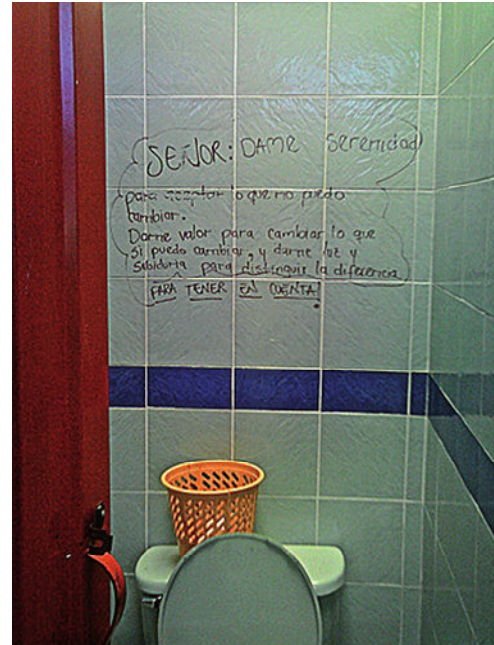 SEÑOR: DAME serenidad
para aceptar lo que no puedo
cambiar.
Darme valor para cambiar lo que
si puedo cambiar, y darme luz y
Sabiduria para distinguir la diferencia
PARA TENER EN CUENTA!